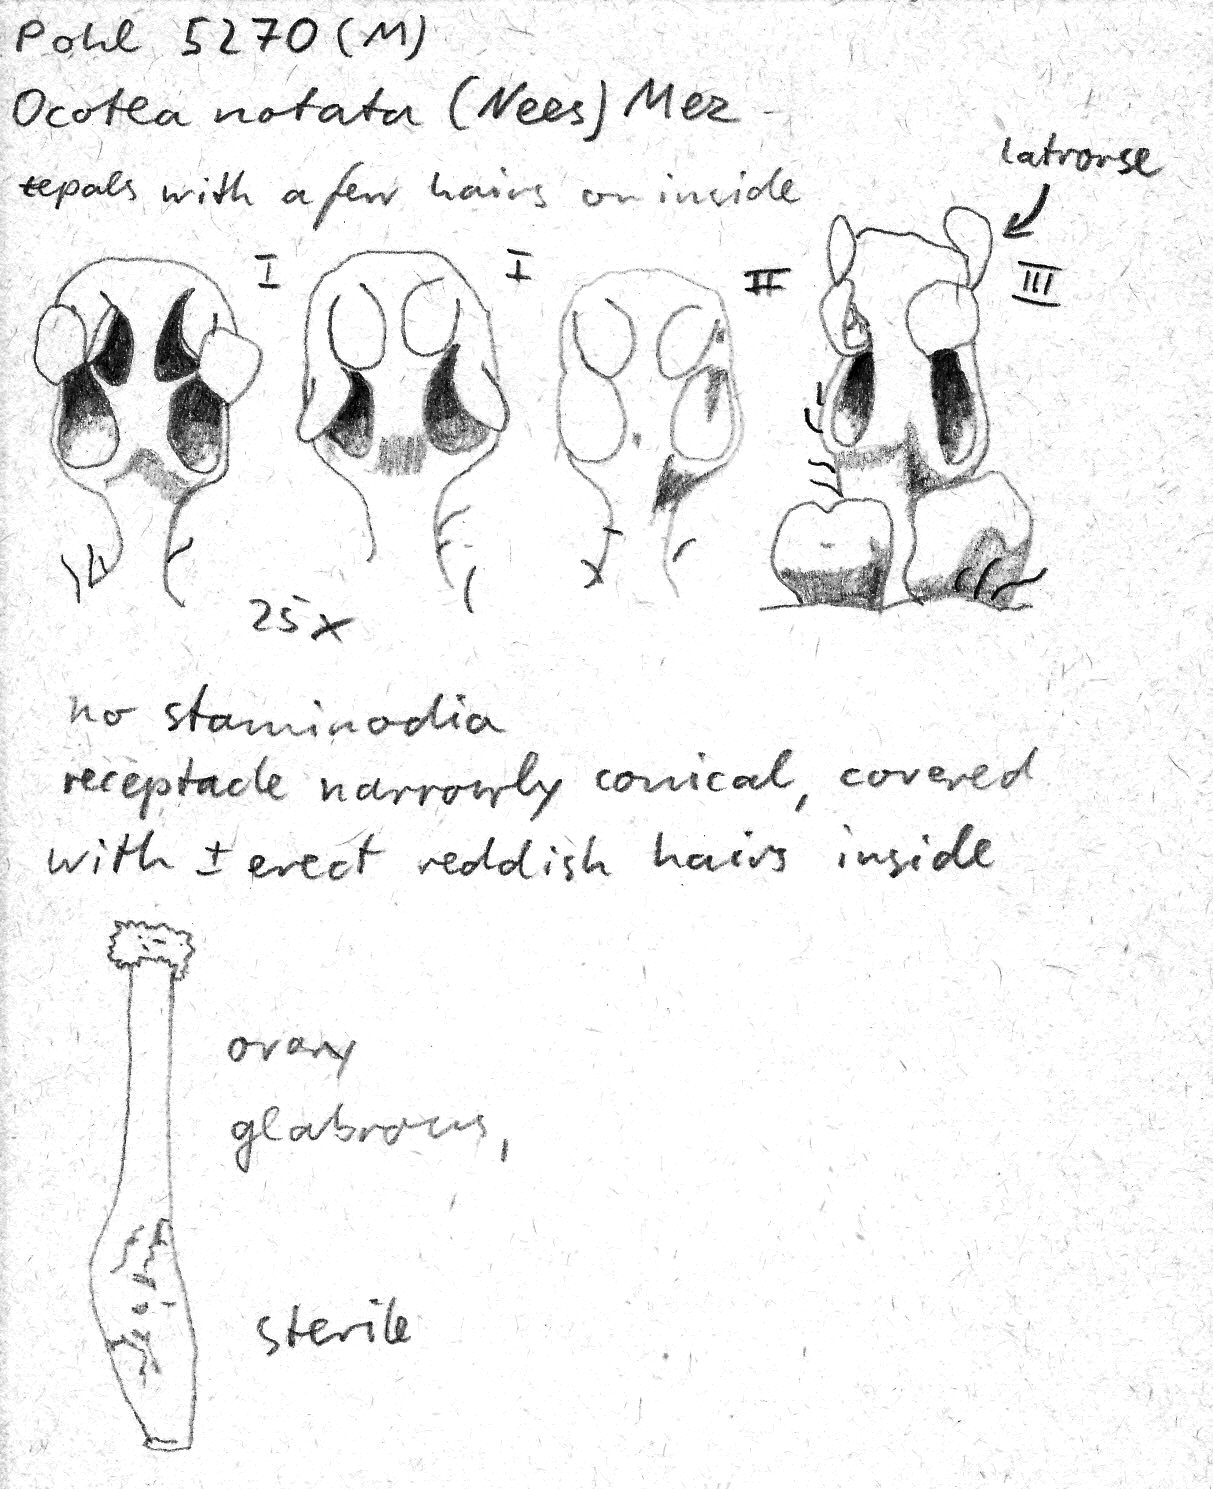 Pohl 5270 (M)
Ocotea notata (Nees) Mez
tepals with a few hairs on inside
latrorse
I I II III
25x
no staminodia
receptacle narrowly conical, covered
with ± erect reddish hairs inside
ovary
glabrous,
sterile